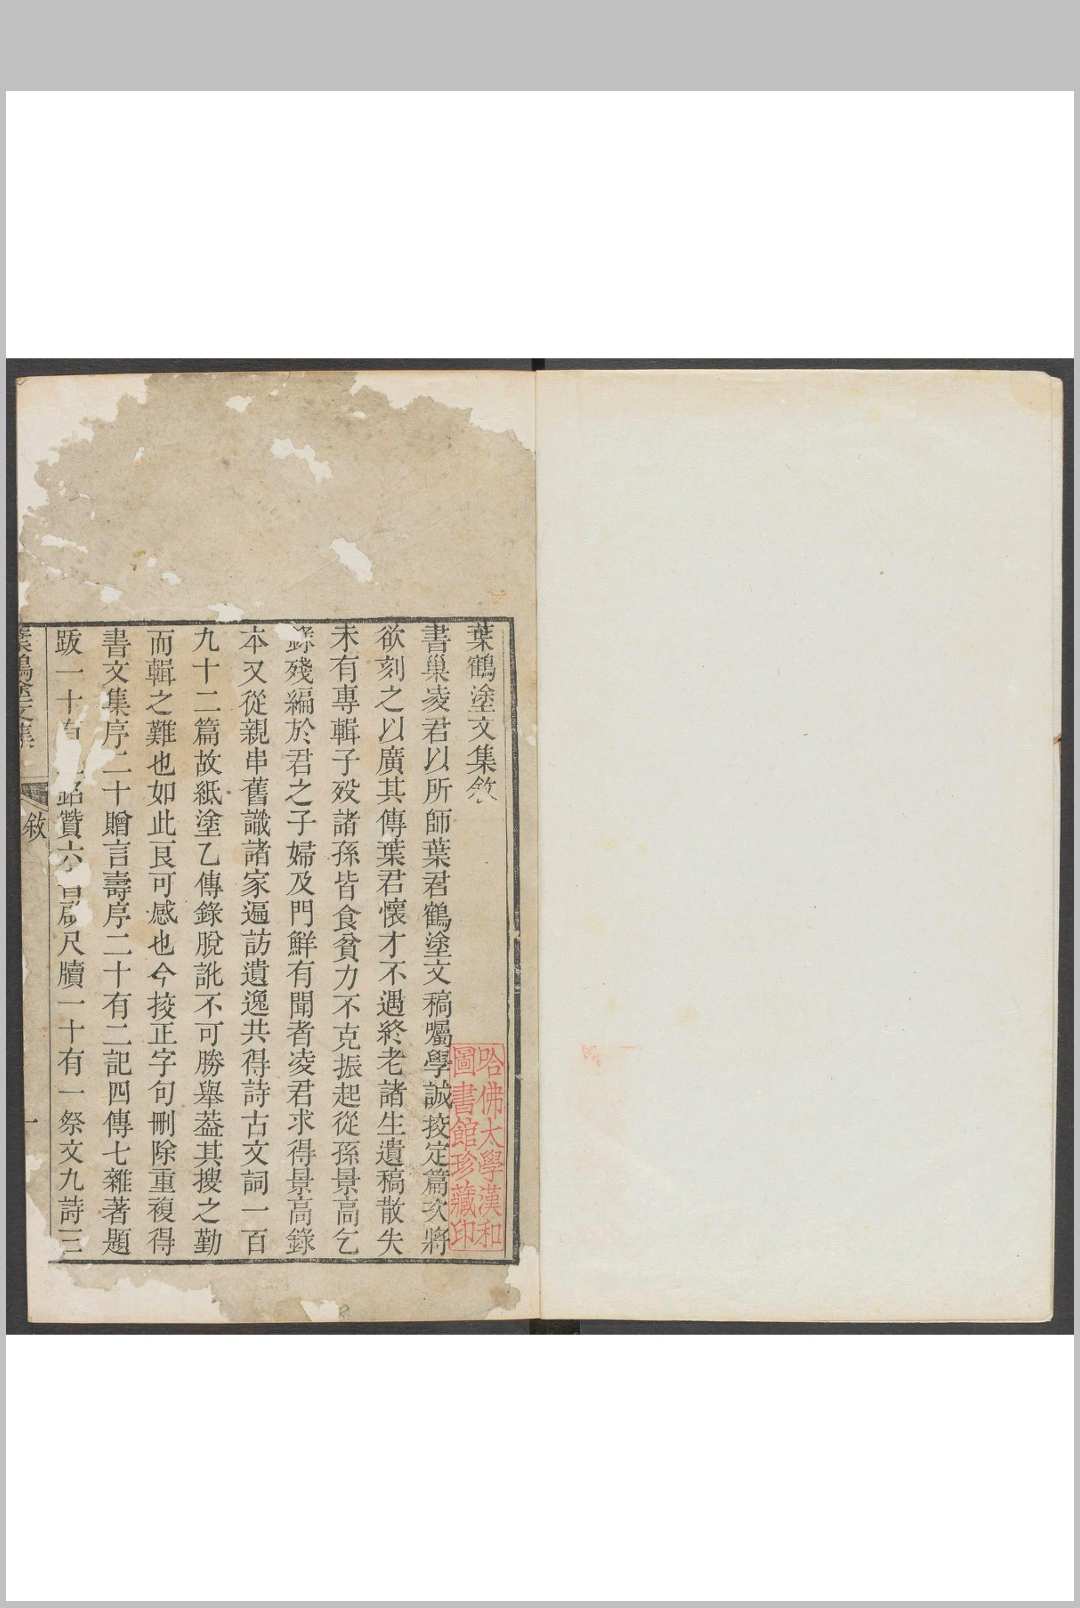 葉鶴塗文集敘
書巢凌君以所師葉君鶴塗文稿囑學誠挍定篇次將
欲刻之以廣其傳葉君懷才不遇終老諸生遺稿散失
未有專輯子歿諸孫皆食貧力不克振起從孫景高乞
錄殘編於君之子婦及門鮮有聞者凌君求得景高錄
本又從親串舊識諸家遍訪遺逸共得詩古文詞一百
九十二篇故紙塗乙傳錄脫訛不可勝舉葢其搜之勤
而輯之難也如此良可感也今挍正字句刪除重複得
書文集序二十贈言壽序二十有二記四傳七雜著題
跋一十有 銘贊六 啟尺牘一十有一祭文九詩三
葉鶴塗文集
敘
一
哈佛大學漢和
圖書館珍藏印